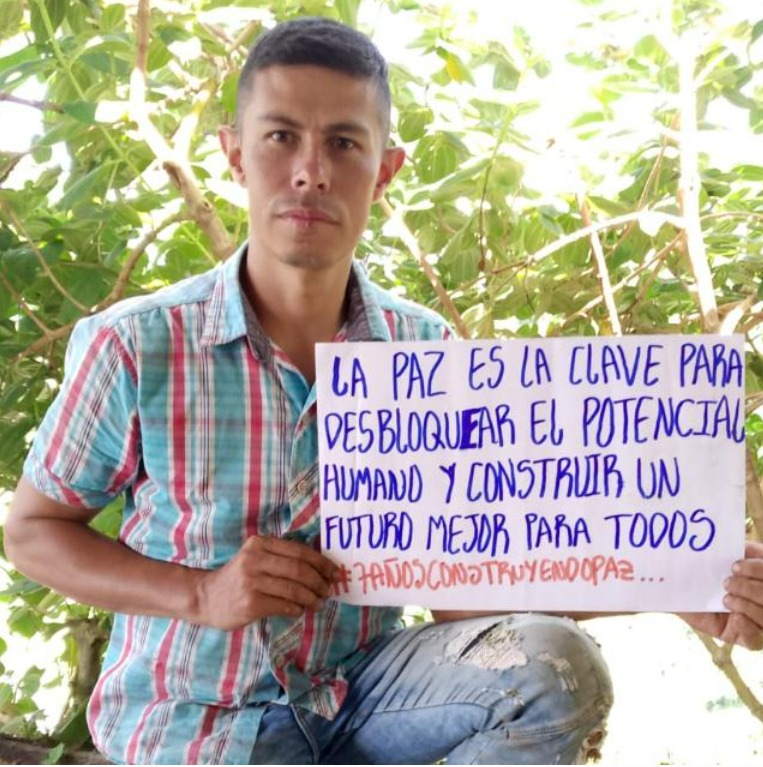 LA PAZ ES LA CLAVE PARA
DESBLOQUEAR EL POTENCIAL
HUMANO Y CONSTRUIR UN
FUTURO MEJOR PARA TODOS
#7AÑOSCONSTRUYENDOPAZ...